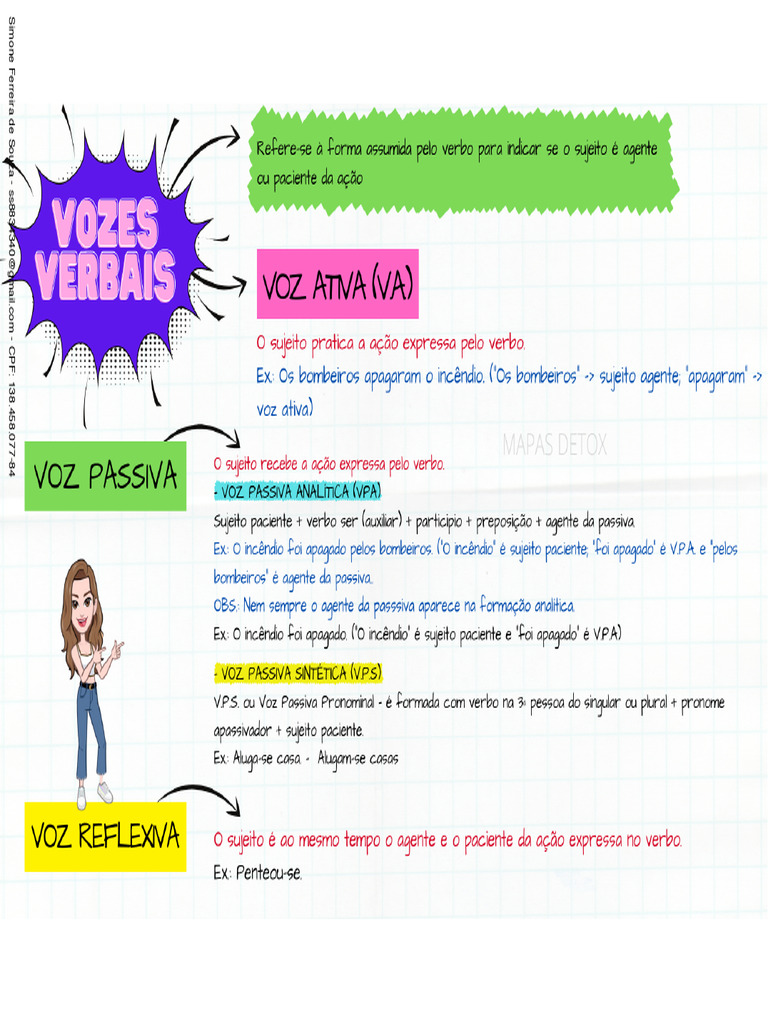 Simone Ferreira de Souza - ss8834340@gmail.com - CPF: 138.458.077-84
VOZES
VERBAIS
Refere-se à forma assumida pelo verbo para indicar se o sujeito é agente
ou paciente da ação
VOZ ATIVA (VA)
O sujeito pratica a ação expressa pelo verbo.
Ex.: Os bombeiros apagaram o incêndio. ("Os bombeiros" -> sujeito agente; "apagaram" ->
voz ativa)
MAPAS DETOX
VOZ PASSIVA
O sujeito recebe a ação expressa pelo verbo.
- VOZ PASSIVA ANALÍTICA (VPA)
Sujeito paciente + verbo ser (auxiliar) + particípio + preposição + agente da passiva.
Ex.: O incêndio foi apagado pelos bombeiros. ("O incêndio" é sujeito paciente; "foi apagado" é V.P.A. e "pelos
bombeiros" é agente da passiva.
OBS.: Nem sempre o agente da passsiva aparece na formação analítica.
Ex.: O incêndio foi apagado. ("O incêndio" é sujeito paciente e "foi apagado" é V.P.A)
- VOZ PASSIVA SINTÉTICA (V.P.S)
V.P.S. ou Voz Passiva Pronominal - é formada com verbo na 3ª pessoa do singular ou plural + pronome
apassivador + sujeito paciente.
Ex.: Aluga-se casa. - Alugam-se casas
VOZ REFLEXIVA
O sujeito é ao mesmo tempo o agente e o paciente da ação expressa no verbo.
Ex.: Penteou-se.